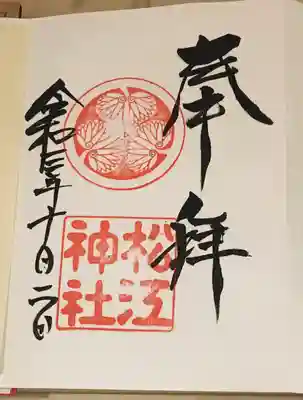 奉拝
松江
神社
令和 年十月 日